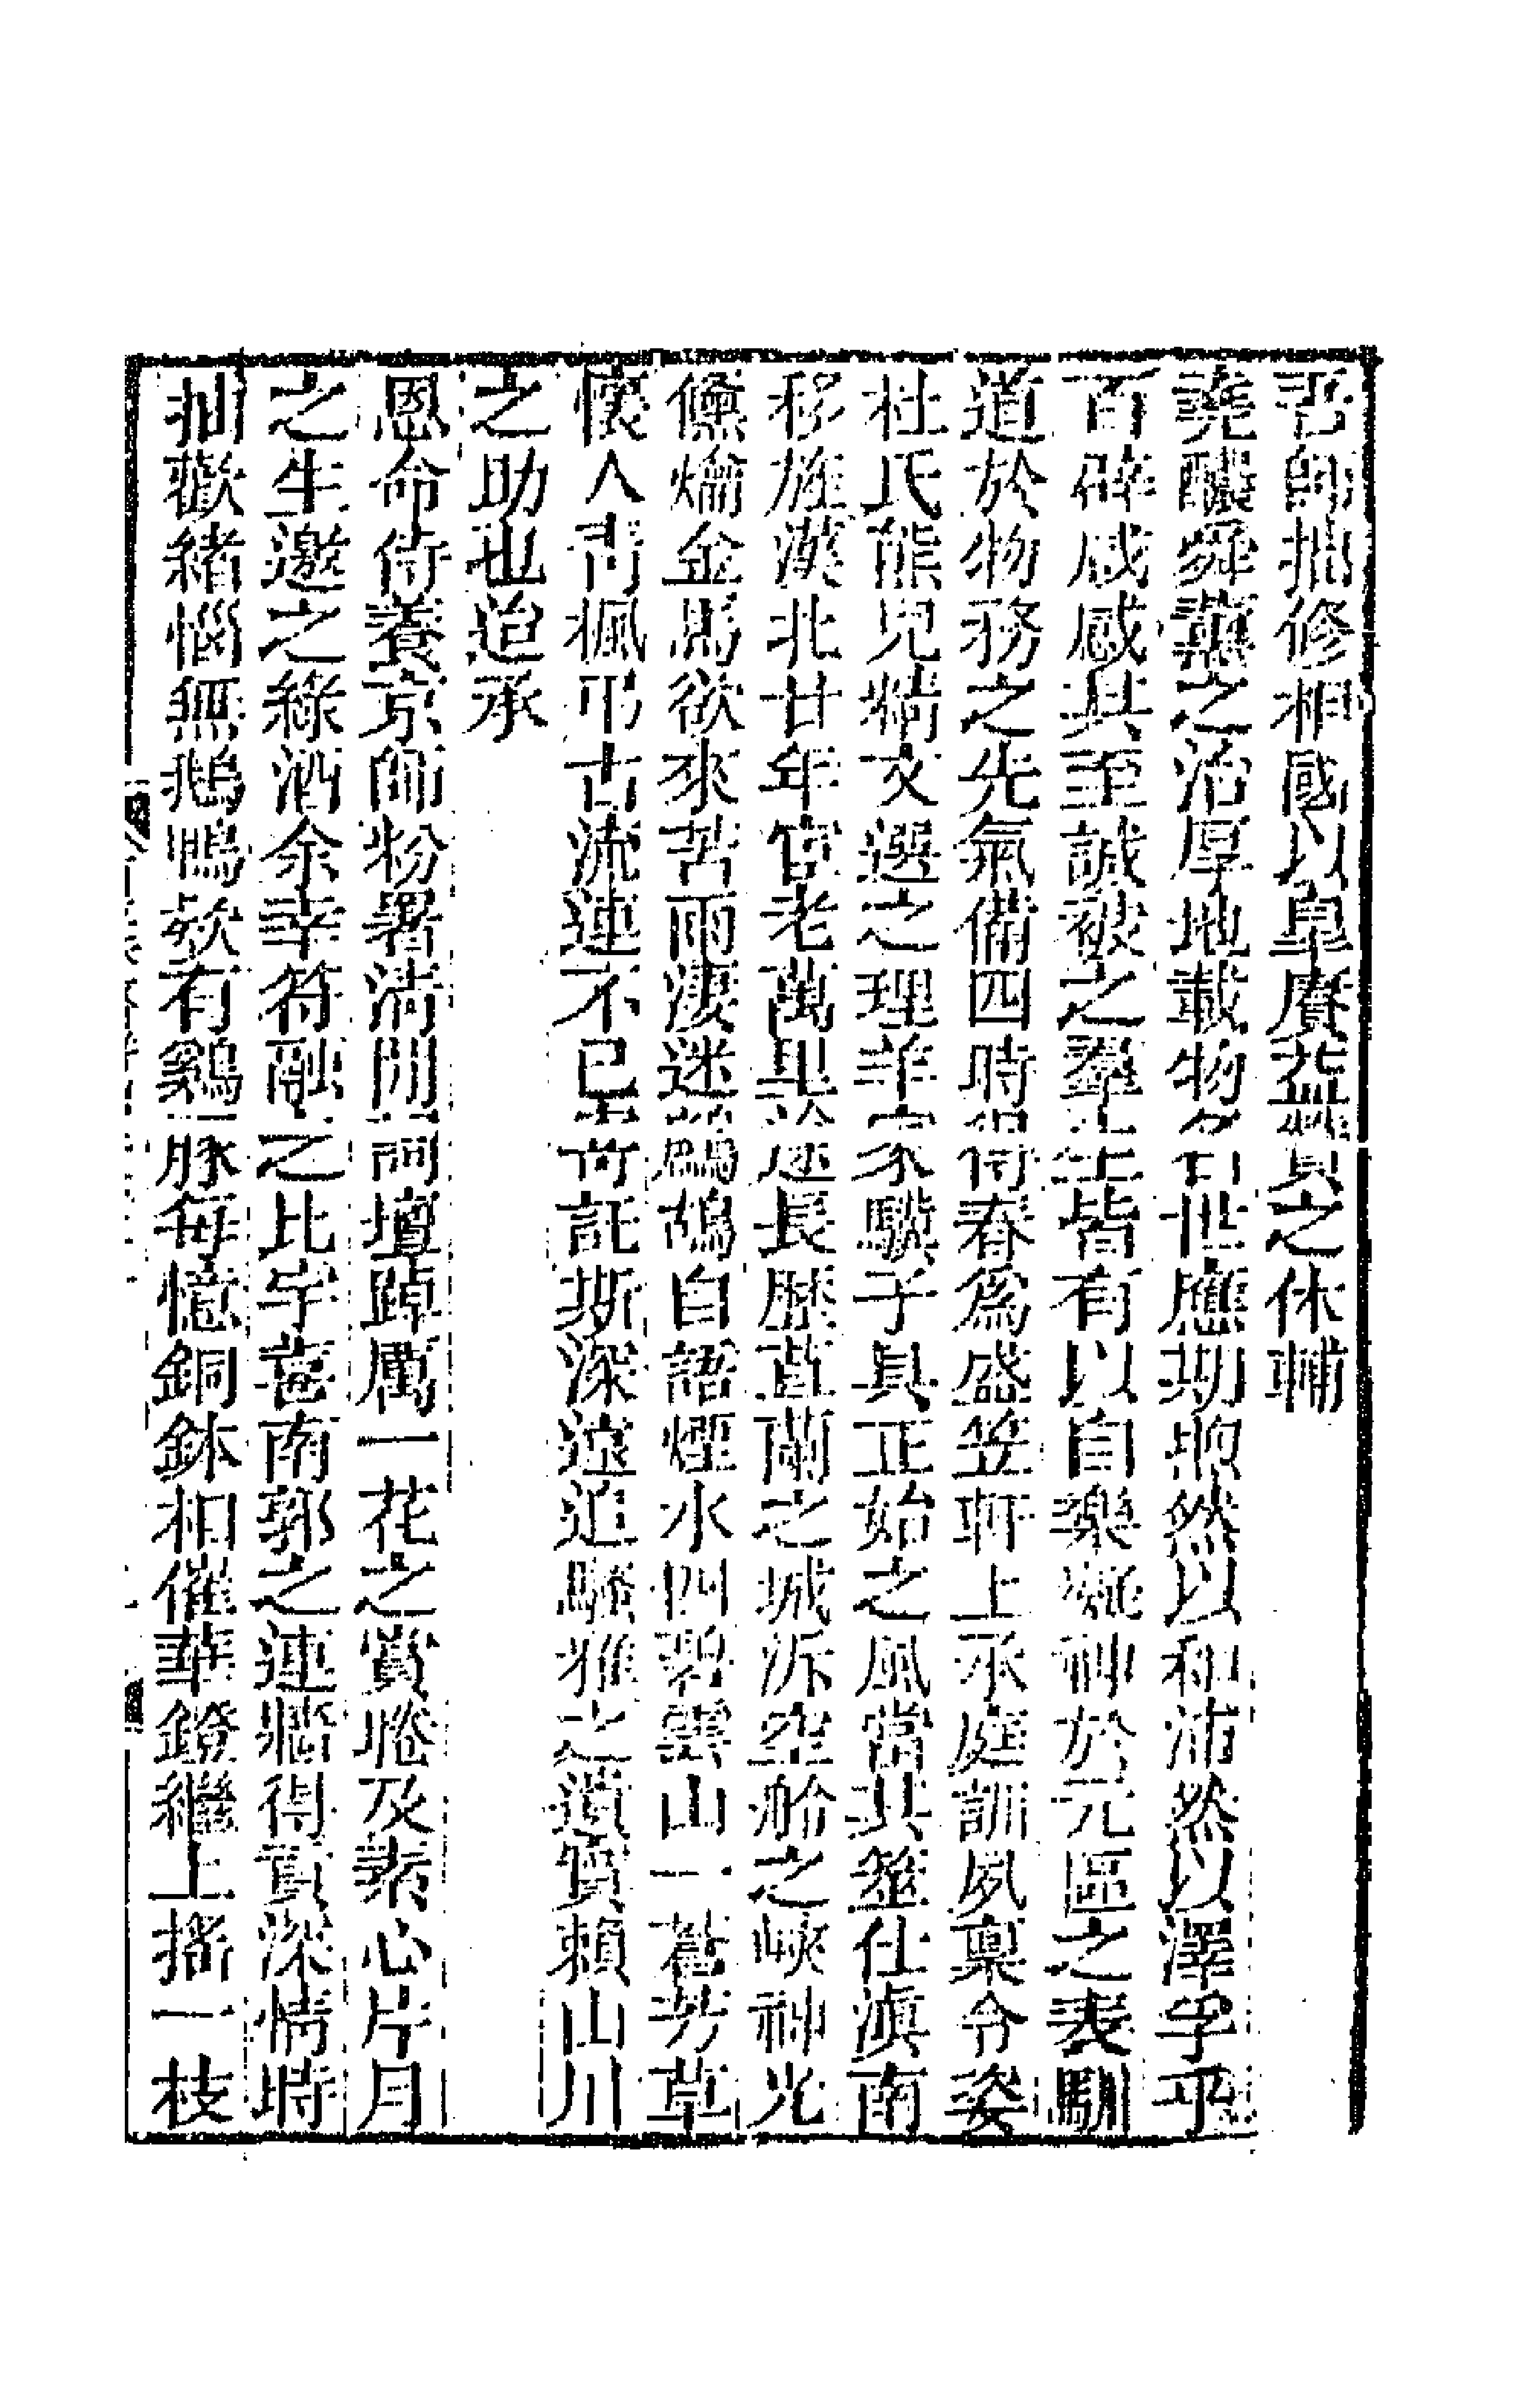 吾師拙修相國以皐賡益贊之休輔
堯醲舜薰之治厚地載物名世應期昫然以和沛然以澤孚乎
百辟咸感其至誠被之羣生皆有以自樂凝神於元區之表馴
道於物務之先氣備四時得春爲盛笠耕上承庭訓夙稟令姿
杜氏熊兒精文選之理羊家驥子具正始之風當其筮仕滇南
移旌漢北廿年官老萬里途長歷苴蘭之城泝空舲之峽神光
儵爚金馬欲來苦雨淒迷鷓鴣自語煙水四碧雲山一蒼芳草
懷人青楓弔古流連不已寄託斯深遠追騷雅之遺實賴山川
之助也迨承
恩命侍養京師粉署淸閒詞壇踔厲一花之賞惓及素心片月
之生邀之綠酒余幸符融之比宇喜南郭之連牆得貢深情時
抽歡緒惱無鵝鴨欸有鷄豚每憶銅鉢相催華鐙繼上搖一枝